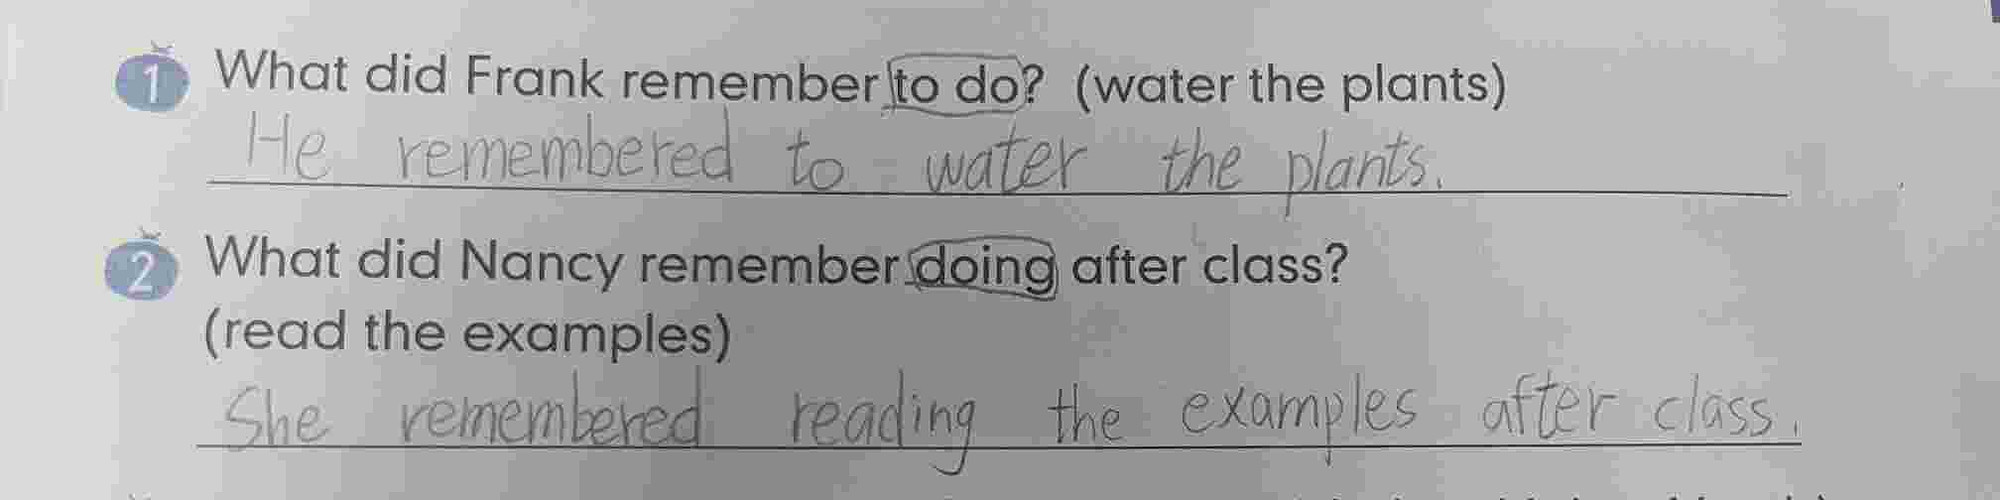 1 What did Frank remember to do? (water the plants)
He remembered to water the plants.
2 What did Nancy remember doing after class?
(read the examples)
She remembered reading the examples after class.